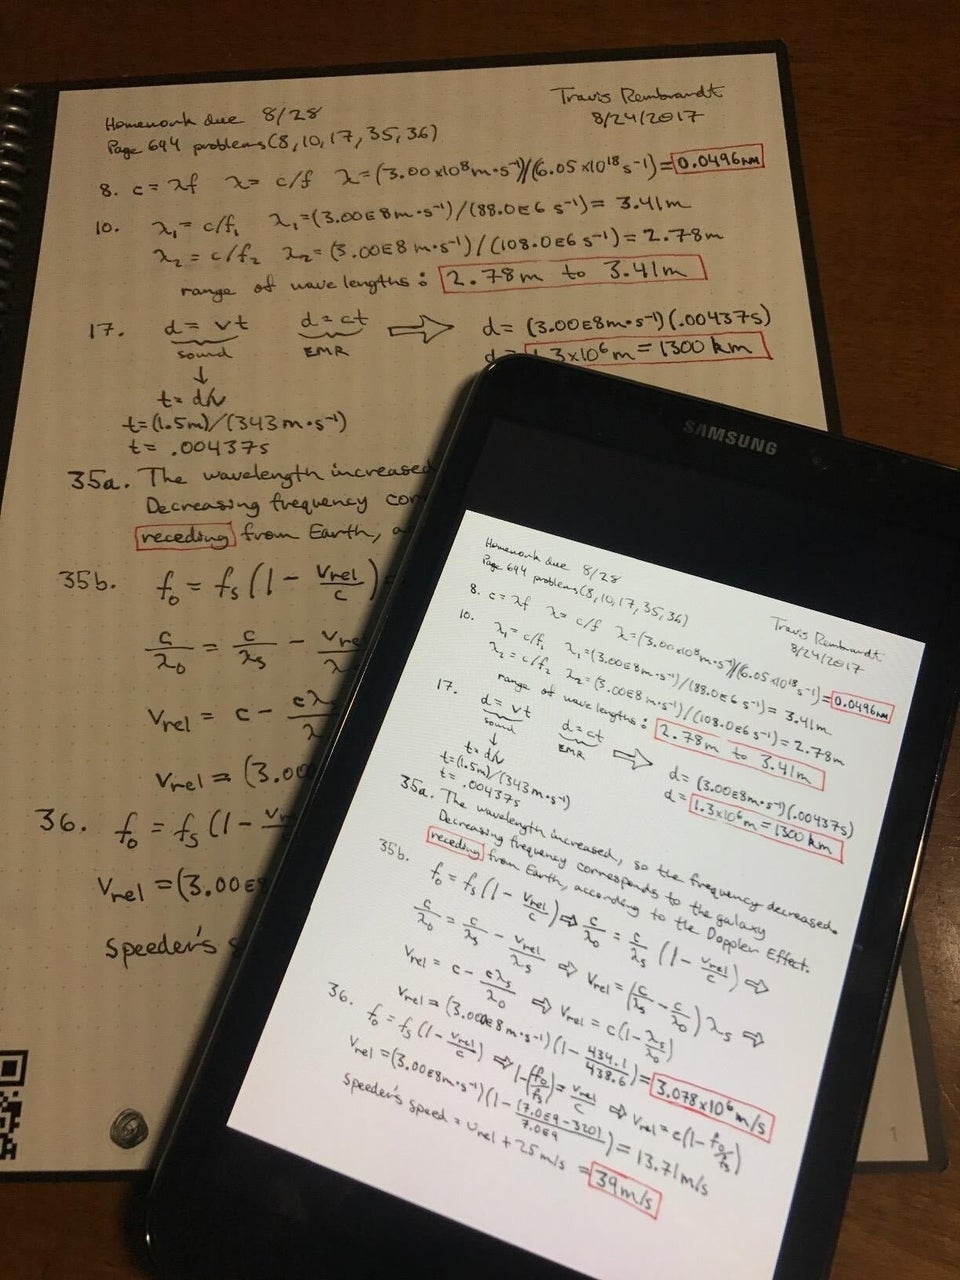 Homework due 8/28
Travis Rembrandt
Page 694 problems (8, 10, 17, 35, 36)
8/24/2017
8. c = λf λ = c/f λ = (3.00×10⁸m·s⁻¹)/(6.05×10¹⁸s⁻¹) = 0.0496nm
10. λ₁ = c/f₁ λ₁ = (3.00E8m·s⁻¹)/(88.0E6 s⁻¹) = 3.41m
λ₂ = c/f₂ λ₂ = (3.00E8 m·s⁻¹)/(108.0E6 s⁻¹) = 2.78m
range of wave lengths: 2.78m to 3.41m
17. d = vt d = ct ⇒ d = (3.00E8m·s⁻¹)(.00437s)
sound EMR d = 1.3×10⁶m = 1300 km
↓
t = d/v
t = (1.5m)/(343m·s⁻¹)
t = .00437s
35a. The wavelength increased
Decreasing frequency cor
receding from Earth, a
35b. f₀ = fₛ(1 - vrel/c)
c/λ₀ = c/λₛ - vre/λ
vrel = c - cλₛ/λ
vrel = (3.00
36. f₀ = fₛ(1 - vr
vrel = (3.00E8
Speeder's s
1
SAMSUNG
Homework due 8/28
Page 694 problems (8, 10, 17, 35, 36)
Travis Rembrandt
8/24/2017
8. c = λf λ = c/f λ = (3.00×10⁸m·s⁻¹)/(6.05×10¹⁸s⁻¹) = 0.0496nm
10. λ₁ = c/f₁ λ₁ = (3.00E8m·s⁻¹)/(88.0E6 s⁻¹) = 3.41m
λ₂ = c/f₂ λ₂ = (3.00E8 m·s⁻¹)/(108.0E6 s⁻¹) = 2.78m
range of wave lengths: 2.78m to 3.41m
17. d = vt d = ct ⇒ d = (3.00E8m·s⁻¹)(.00437s)
sound EMR d = 1.3×10⁶m = 1300 km
↓
t = d/v
t = (1.5m)/(343m·s⁻¹)
t = .00437s
35a. The wavelength increased, so the frequency decreased.
Decreasing frequency corresponds to the galaxy
receding from Earth, according to the Doppler Effect.
35b. f₀ = fₛ(1 - vrel/c) ⇒ c/λ₀ = c/λₛ (1 - vrel/c) ⇒
c/λ₀ = c/λₛ - vrel/λₛ ⇒ vrel = (c/λₛ - c/λ₀)λₛ ⇒
vrel = c - cλₛ/λ₀ ⇒ vrel = c(1 - λₛ/λ₀)
vrel = (3.00E8 m·s⁻¹)(1 - 434.1/438.6) = 3.078×10⁶m/s
36. f₀ = fₛ(1 - vrel/c) ⇒ 1 - (f₀/fₛ) = vrel/c ⇒ vrel = c(1 - f₀/fₛ)
vrel = (3.00E8m·s⁻¹)(1 - (7.0E9-320)/7.0E9) = 13.71m/s
Speeder's speed = vrel + 25m/s = 39m/s